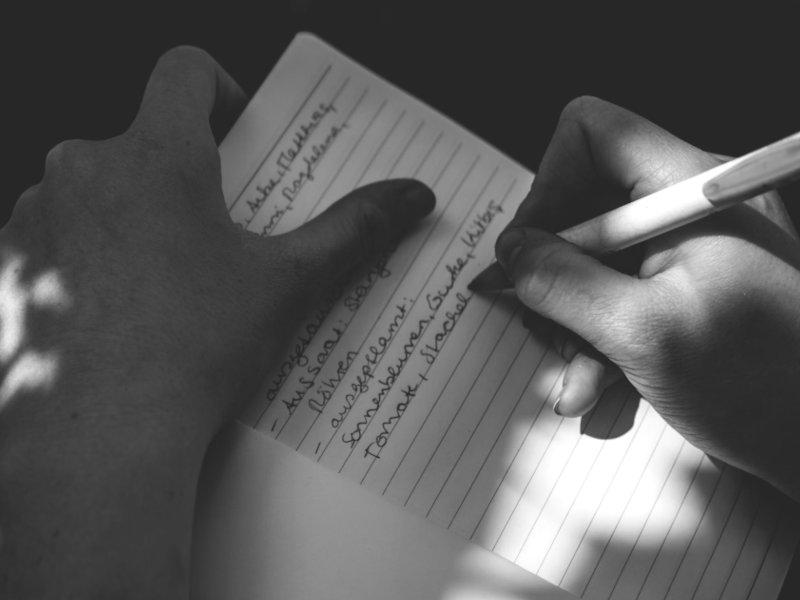 Anke, Matthias,
Magdalena,
ausgesät
- Aussaat: Stangen
Röhren
- ausgepflanzt:
Sonnenblumen, Gurke, Kürbis,
Tomate, Stachel